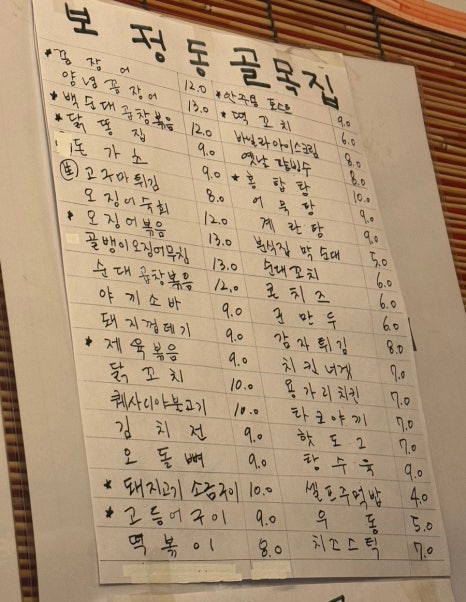 보정동골목집
*꼼장어 12.0
양념꼼장어 13.0
*백순대곱창볶음 12.0
*닭똥집 9.0
돈가스 9.0
生 고구마튀김 8.0
오징어숙회 12.0
*오징어볶음 13.0
골뱅이오징어무침 13.0
순대곱창볶음 12.0
야끼소바 9.0
돼지껍데기 9.0
*제육볶음 9.0
닭꼬치 10.0
퀘사디아불고기 10.0
김치전 9.0
오돌뼈 9.0
*돼지고기 소금구이 10.0
*고등어구이 9.0
떡볶이 8.0
*안주용 9.0
*떡꼬치 6.0
바닐라아이스크림 8.0
옛날팥빙수 8.0
*홍합탕 10.0
어묵탕 9.0
계란탕 9.0
분식집 막순대 5.0
순대꼬치 6.0
콘치즈 6.0
군만두 6.0
감자튀김 8.0
치킨너겟 7.0
용가리치킨 7.0
타코야끼 7.0
핫도그 7.0
탕수육 9.0
셀프주먹밥 4.0
우동 5.0
치즈스틱 7.0